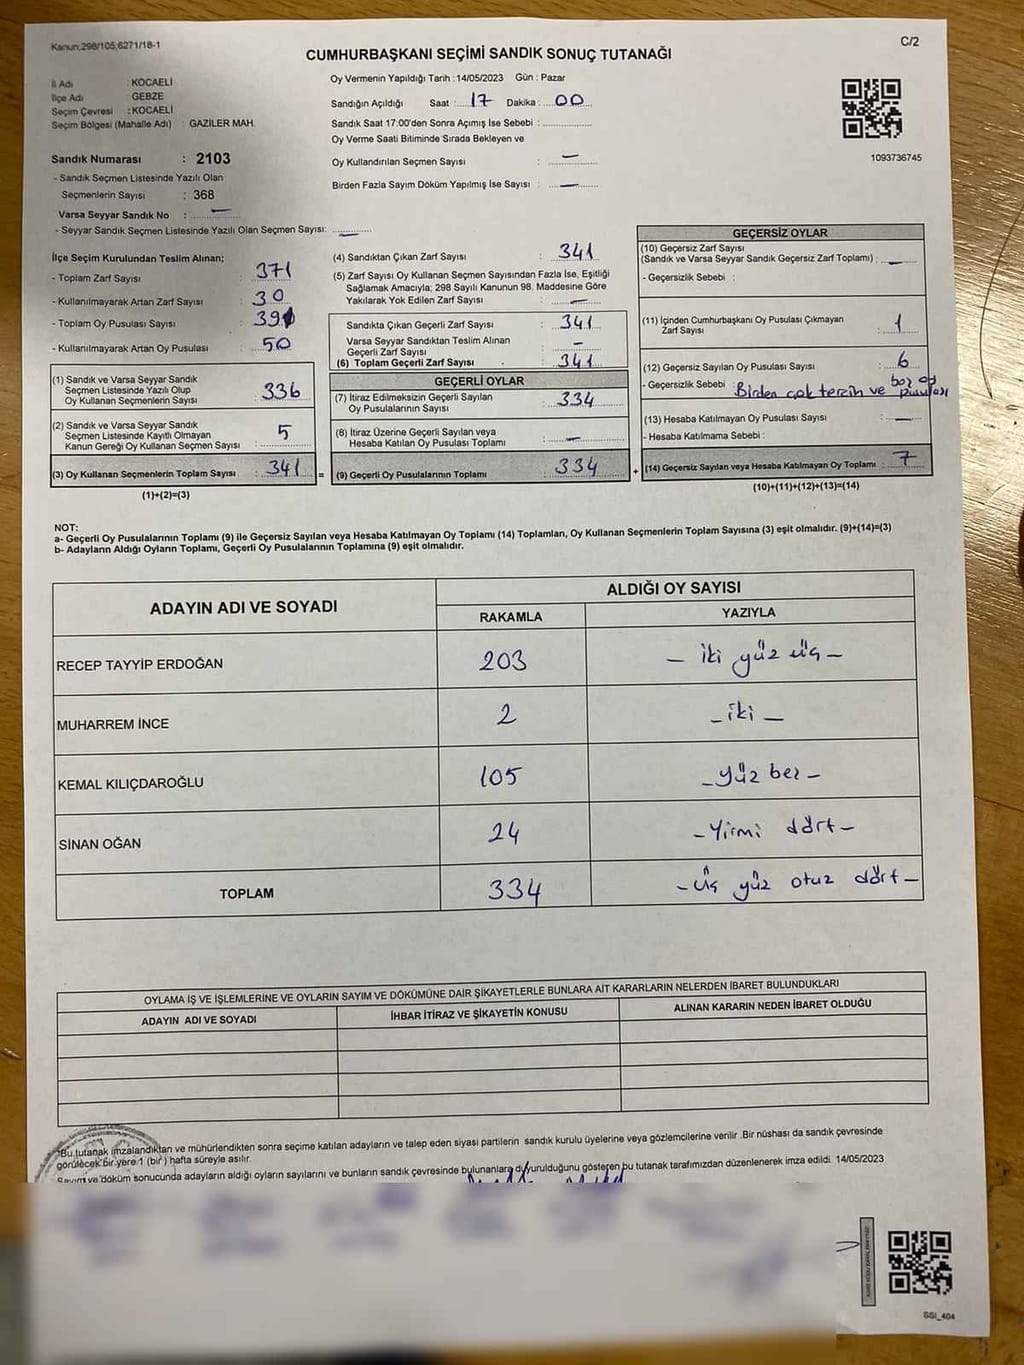 Kanun:298/105,6271/18-1
C/2
CUMHURBAŞKANI SEÇİMİ SANDIK SONUÇ TUTANAĞI
İl Adı : KOCAELİ
İlçe Adı : GEBZE
Seçim Çevresi : KOCAELİ
Seçim Bölgesi (Mahalle Adı) : GAZİLER MAH.
Sandık Numarası : 2103
- Sandık Seçmen Listesinde Yazılı Olan
Seçmenlerin Sayısı : 368
Varsa Seyyar Sandık No : —
- Seyyar Sandık Seçmen Listesinde Yazılı Olan Seçmen Sayısı: —
Oy Vermenin Yapıldığı Tarih :14/05/2023 Gün : Pazar
Sandığın Açıldığı Saat : 17 Dakika : 00
Sandık Saat 17:00'den Sonra Açımış İse Sebebi :
Oy Verme Saati Bitiminde Sırada Bekleyen ve
Oy Kullandırılan Seçmen Sayısı : —
Birden Fazla Sayım Döküm Yapılmış İse Sayısı : —
1093736745
İlçe Seçim Kurulundan Teslim Alınan;
- Toplam Zarf Sayısı : 371
- Kullanılmayarak Artan Zarf Sayısı : 30
- Toplam Oy Pusulası Sayısı : 391
- Kullanılmayarak Artan Oy Pusulası : 50
(1) Sandık ve Varsa Seyyar Sandık
Seçmen Listesinde Yazılı Olup
Oy Kullanan Seçmenlerin Sayısı : 336
(2) Sandık ve Varsa Seyyar Sandık
Seçmen Listesinde Kayıtlı Olmayan
Kanun Gereği Oy Kullanan Seçmen Sayısı : 5
(3) Oy Kullanan Seçmenlerin Toplam Sayısı : 341 =
(1)+(2)=(3)
(4) Sandıktan Çıkan Zarf Sayısı : 341
(5) Zarf Sayısı Oy Kullanan Seçmen Sayısından Fazla İse, Eşitliği
Sağlamak Amacıyla; 298 Sayılı Kanunun 98. Maddesine Göre
Yakılarak Yok Edilen Zarf Sayısı : —
Sandıkta Çıkan Geçerli Zarf Sayısı : 341
Varsa Seyyar Sandıktan Teslim Alınan
Geçerli Zarf Sayısı : —
(6) Toplam Geçerli Zarf Sayısı : 341
GEÇERLİ OYLAR
(7) İtiraz Edilmeksizin Geçerli Sayılan
Oy Pusulalarının Sayısı : 334
(8) İtiraz Üzerine Geçerli Sayılan veya
Hesaba Katılan Oy Pusulası Toplamı : —
(9) Geçerli Oy Pusulalarının Toplamı : 334 +
GEÇERSİZ OYLAR
(10) Geçersiz Zarf Sayısı
(Sandık ve Varsa Seyyar Sandık Geçersiz Zarf Toplamı) : —
- Geçersizlik Sebebi :
(11) İçinden Cumhurbaşkanı Oy Pusulası Çıkmayan
Zarf Sayısı : 1
(12) Geçersiz Sayılan Oy Pusulası Sayısı : 6
- Geçersizlik Sebebi : Birden çok tercih ve boş oy pusulası
(13) Hesaba Katılmayan Oy Pusulası Sayısı : —
- Hesaba Katılmama Sebebi :
(14) Geçersiz Sayılan veya Hesaba Katılmayan Oy Toplamı : 7
(10)+(11)+(12)+(13)=(14)
NOT:
a- Geçerli Oy Pusulalarının Toplamı (9) ile Geçersiz Sayılan veya Hesaba Katılmayan Oy Toplamı (14) Toplamları, Oy Kullanan Seçmenlerin Toplam Sayısına (3) eşit olmalıdır. (9)+(14)=(3)
b- Adayların Aldığı Oyların Toplamı, Geçerli Oy Pusulalarının Toplamına (9) eşit olmalıdır.
ADAYIN ADI VE SOYADI ALDIĞI OY SAYISI
RAKAMLA YAZIYLA
RECEP TAYYİP ERDOĞAN 203 — iki yüz üç —
MUHARREM İNCE 2 — iki —
KEMAL KILIÇDAROĞLU 105 — yüz beş —
SİNAN OĞAN 24 — Yirmi dört —
TOPLAM 334 — üç yüz otuz dört —
OYLAMA İŞ VE İŞLEMLERİNE VE OYLARIN SAYIM VE DÖKÜMÜNE DAİR ŞİKAYETLERLE BUNLARA AİT KARARLARIN NELERDEN İBARET BULUNDUKLARI
ADAYIN ADI VE SOYADI İHBAR İTİRAZ VE ŞİKAYETİN KONUSU ALINAN KARARIN NEDEN İBARET OLDUĞU
*Bu tutanak imzalandıktan ve mühürlendikten sonra seçime katılan adayların ve talep eden siyasi partilerin sandık kurulu üyelerine veya gözlemcilerine verilir .Bir nüshası da sandık çevresinde
görülecek bir yere 1 (bir ) hafta süreyle asılır.
Sayım ve döküm sonucunda adayların aldığı oyların sayılarını ve bunların sandık çevresinde bulunanlara duyurulduğunu gösteren bu tutanak tarafımızdan düzenlenerek imza edildi. 14/05/2023
SSI_404